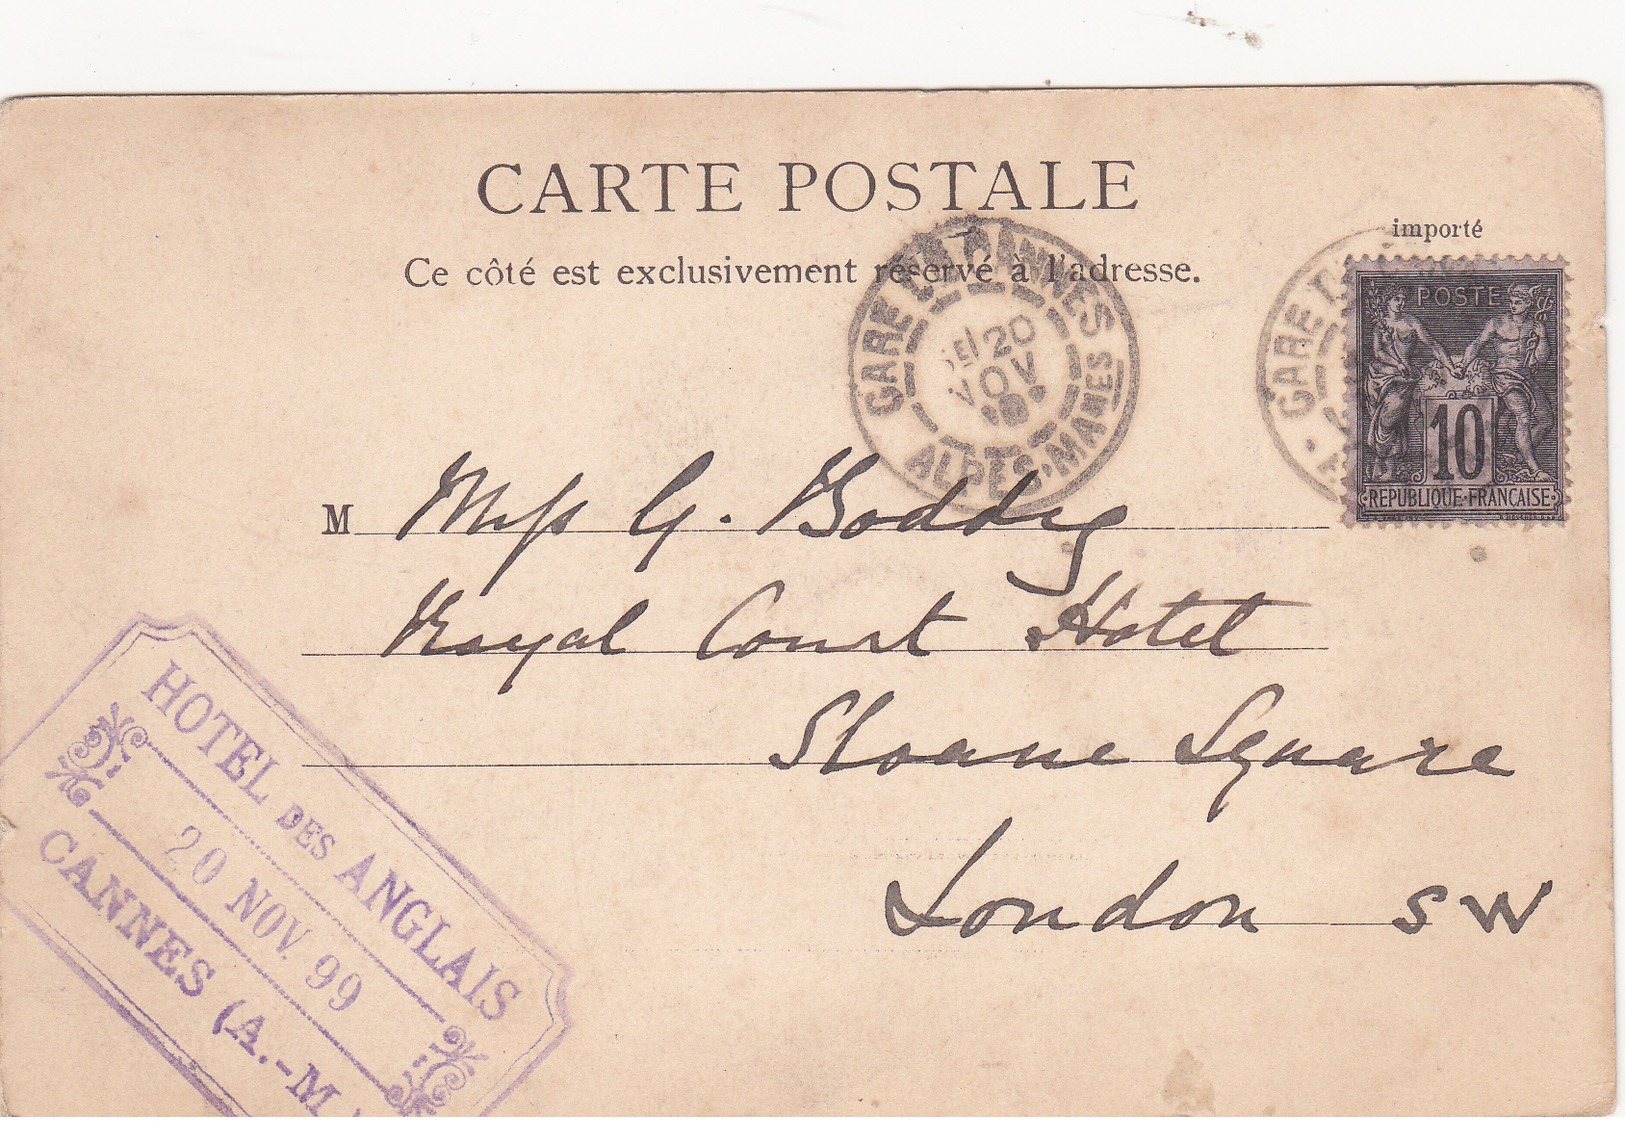 CARTE POSTALE
importé
Ce côté est exclusivement réservé à l'adresse.
GARE DE CANNES
20
NOV
ALPES-MAMES
GARE D
POSTE
10
REPUBLIQUE FRANÇAISE
M Miss G. Boddy
Royal Court Hotel
Sloane Square
London SW
HOTEL DES ANGLAIS
20 NOV. 99
CANNES (A.-M